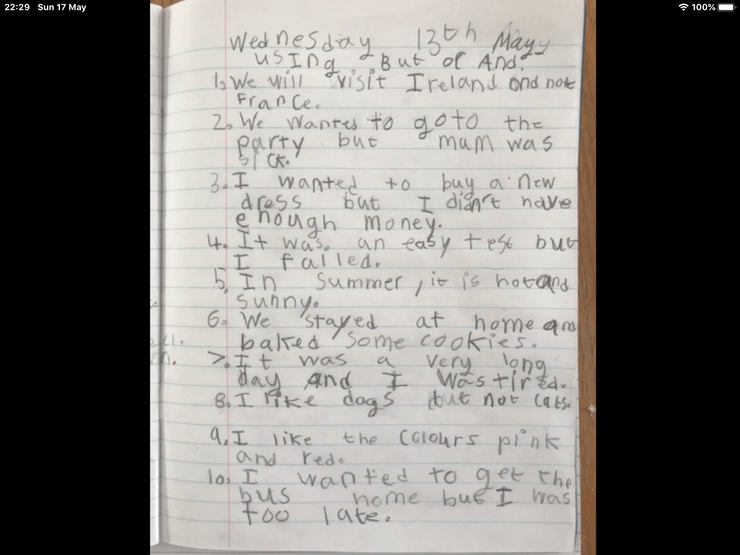 22:29 Sun 17 May
100%
Wednesday 13th Mayy
using But or And.
1. We will visit Ireland ond not
France.
2. We wantes to go to the
party but mum was
sick.
3. I wanted to buy a new
dress but I didn't have
enough money.
4. It was. an easy test but
I failled.
5. In Summer, it is hot and
sunny.
6. We stayed at home an
baked some cookies.
7. It was a very long
day and I was tired.
8. I like dogs but not cats.
9. I like the colours pink
and red.
10. I wanted to get the
bus home but I was
too late.